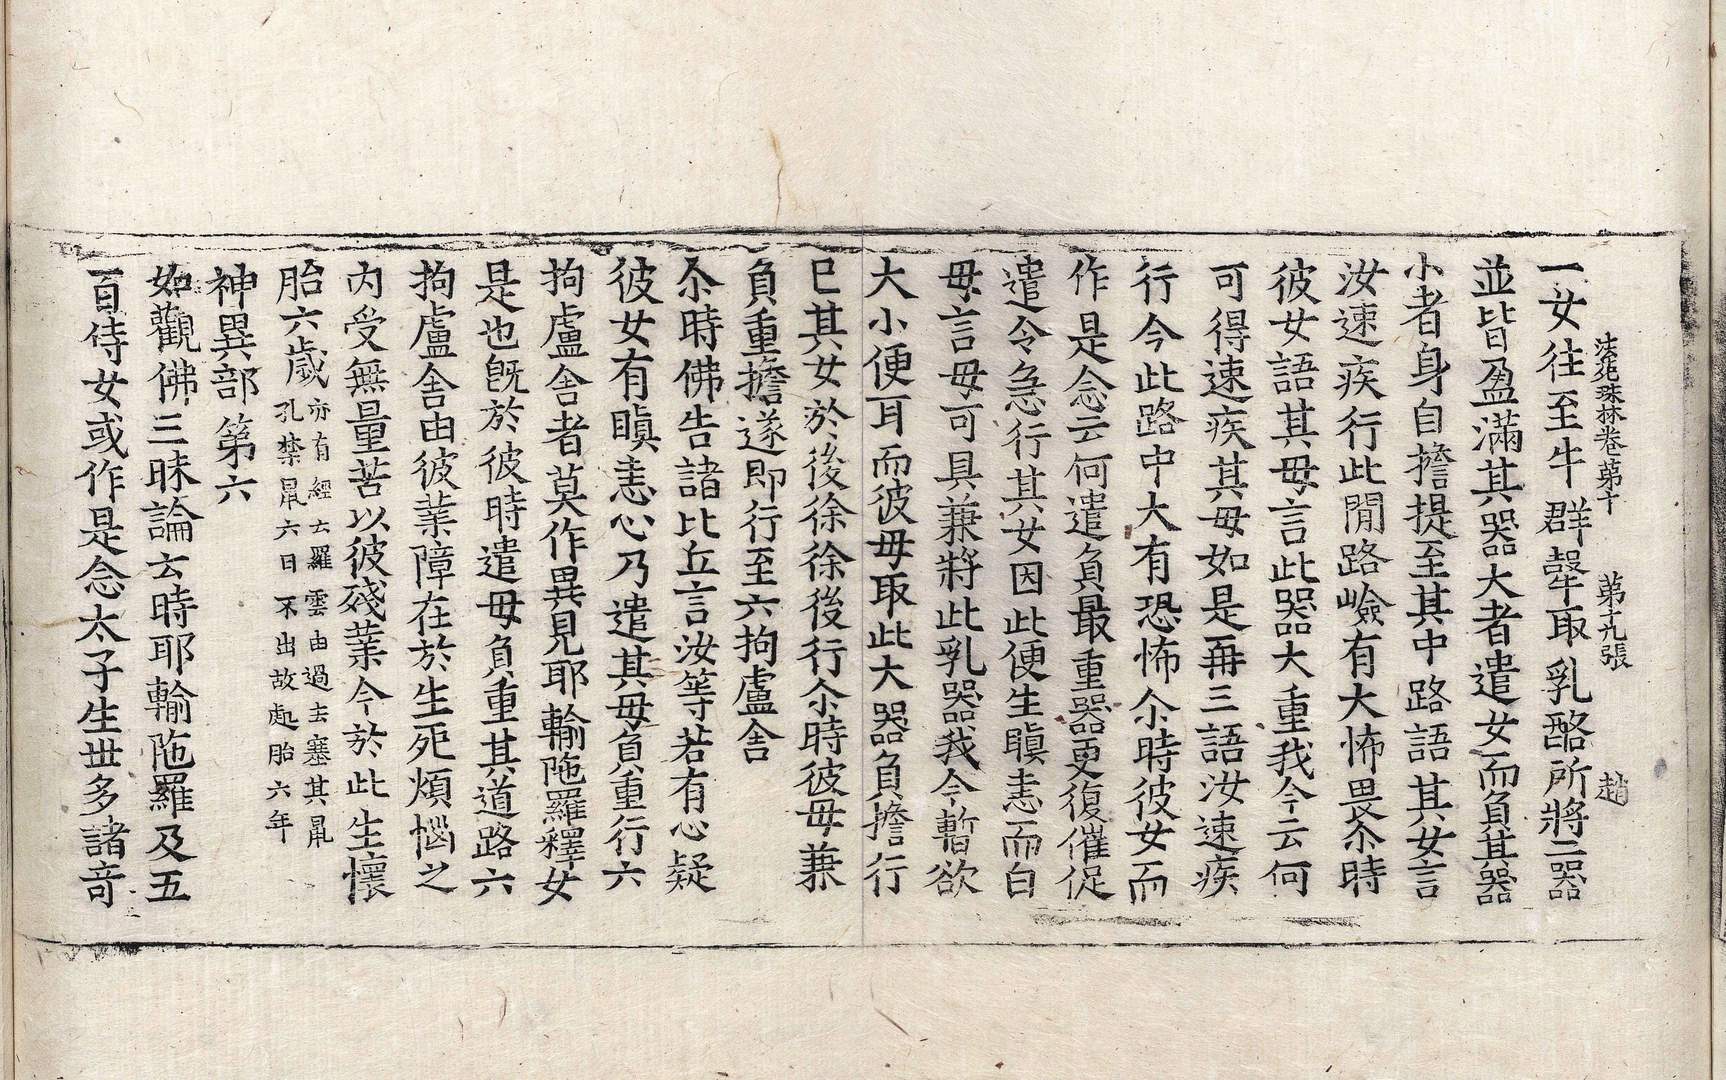 法苑珠林卷第十　第十九張　趙
一女往至牛群㹌取乳酪所將二器
並皆盈滿其器大者遣女而負其器
小者身自擔提至其中路語其女言
汝速疾行此間路嶮有大怖畏尒時
彼女語其母言此器大重我今云何
可得速疾其母如是再三語汝速疾
行今此路中大有恐怖尒時彼女而
作是念云何遣負最重器更復催促
遣令急行其女因此便生瞋恚而白
母言母可具兼將此乳器我今暫欲
大小便耳而彼母取此大器負擔行
已其女於後徐徐後行尒時彼母兼
負重擔遂即行至六拘盧舍
尒時佛告諸比丘言汝等若有心疑
彼女有瞋恚心乃遣其母負重行六
拘盧舍者莫作異見耶輸陁羅釋女
是也旣於彼時遣母負重其道路六
拘盧舍由彼業障在於生死煩惱之
內受無量苦以彼殘業今於此生懷
胎六歲亦有經云羅雲由過去塞其鼠
孔禁鼠六日不出故處胎六年
神異部第六
如觀佛三昧論云時耶輸陁羅及五
百侍女或作是念太子生世多諸奇